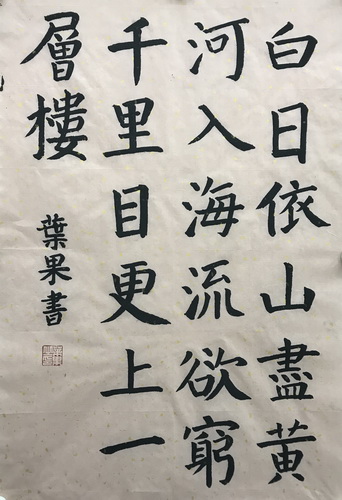 白日依山盡黃
河入海流欲窮
千里目更上一
層樓
葉果書